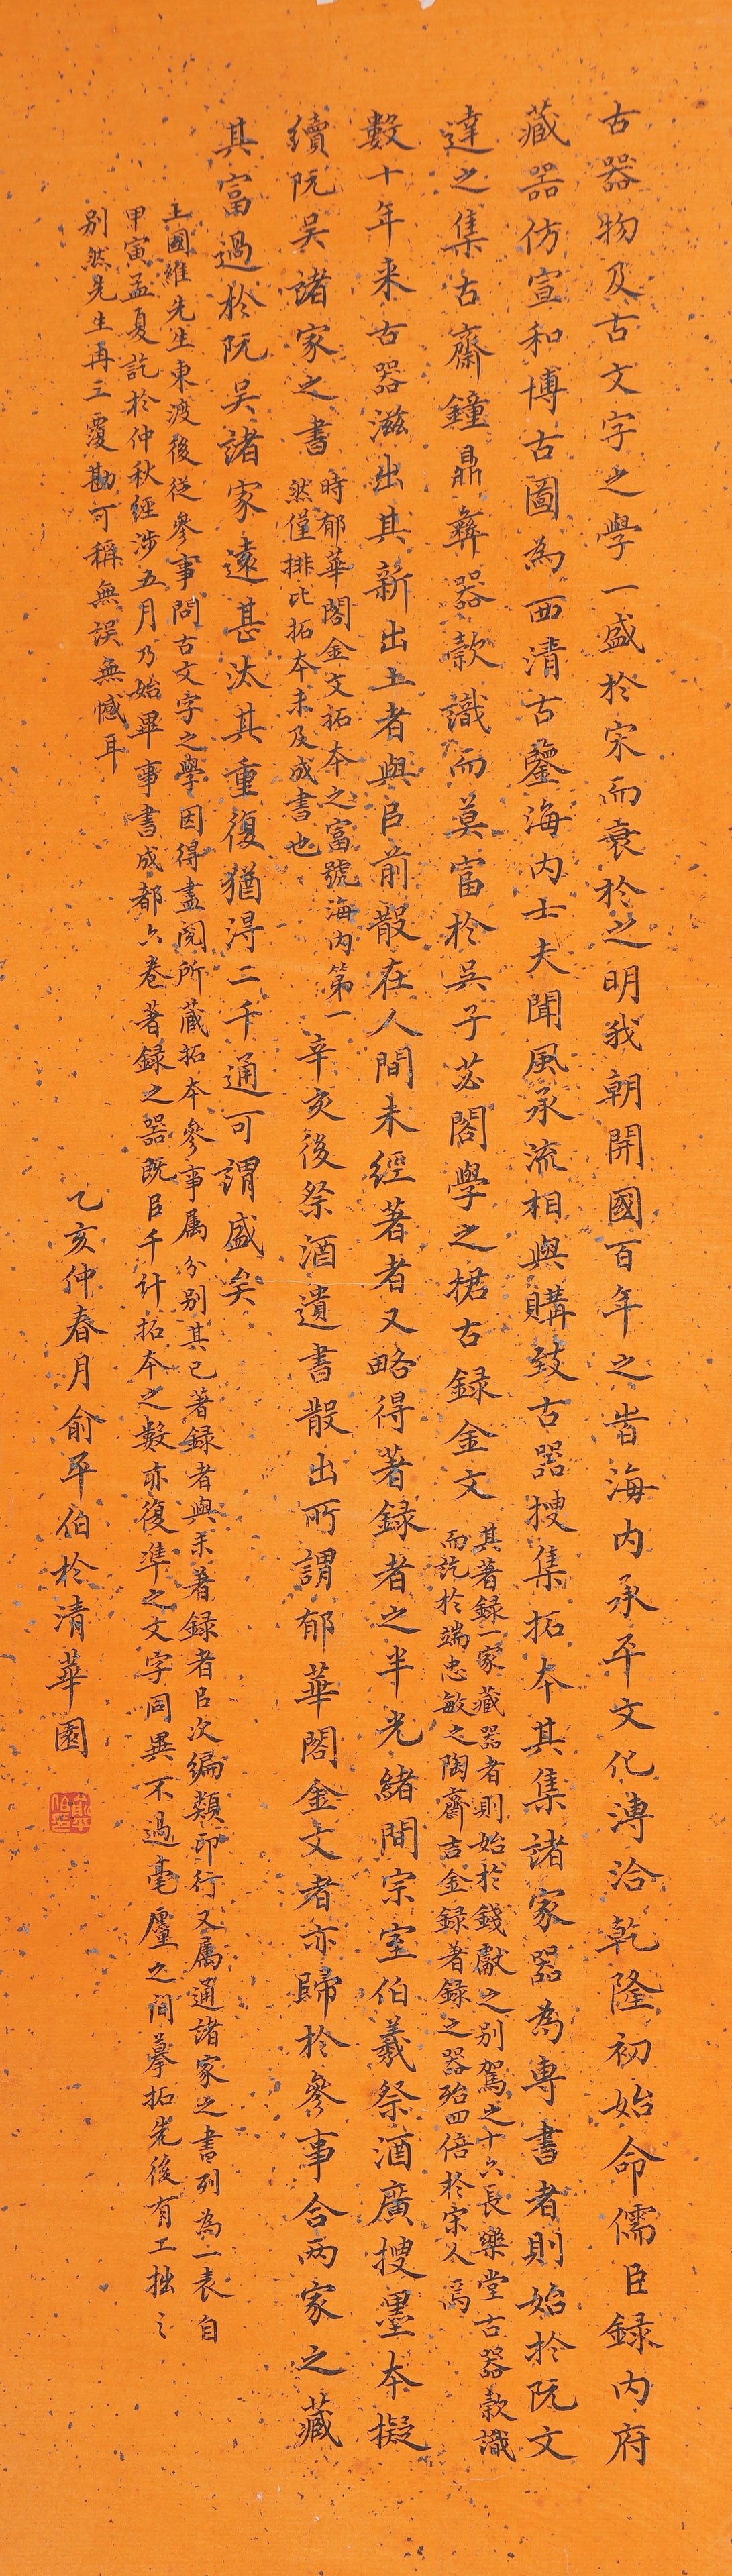 古器物及古文字之學一盛於宋而衰於之明我朝開國百年之㫮海內承平文化溥洽乾隆初始命儒臣録內府
藏器仿宣和博古圖為西清古鑒海內士夫聞風承流相與購致古器搜集拓本其集諸家器為專書者則始於阮文
達之集古齋鐘鼎彝器款識而莫富於吳子苾閣學之捃古録金文
其著録一家藏器者則始於錢獻之别駕之十六長樂堂古器款識
而訖於端忠敏之陶齋吉金録著録之器殆四倍於宋人焉
數十年来古器滋出其新出土者與㠯前散在人間未經著者又略得著録者之半光緒間宗室伯羲祭酒廣搜墨本擬
續阮吳諸家之書
時郁華閣金文拓本之富號海內第一
然僅排比拓本未及成書也
辛亥後祭酒遺書散出所謂郁華閣金文者亦歸於參事合兩家之藏
其富過於阮吳諸家遠甚汰其重復猶得二千通可謂盛矣
王國維先生東渡後從參事問古文字之學因得盡閱所藏拓本參事属分别其已著録者與未著録者㠯次編類印行又属通諸家之書列為一表自
甲寅孟夏訖於仲秋經涉五月乃始畢事書成都六卷著録之器既㠯千计拓本之數亦復準之文字同異不過毫釐之間摹拓先後有工拙之
别然先生再三覆勘可稱無誤無憾耳
乙亥仲春月俞平伯於清華園